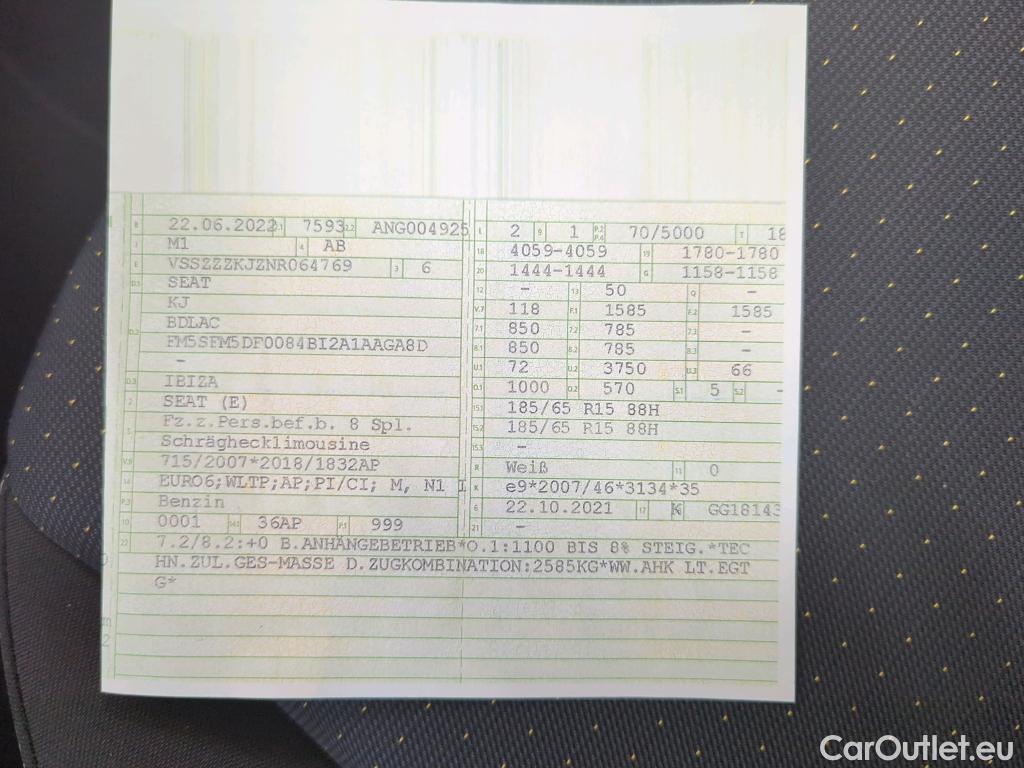 B 22.06.2022 2.1 7593 2.2 ANG004925
J M1 4 AB
E VSSZZZKJZNR064769 3 6
D.1 SEAT
KJ
BDLAC
D.2 FM5SFM5DF0084BI2A1AAGA8D
-
D.3 IBIZA
2 SEAT (E)
5 Fz.z.Pers.bef.b. 8 Spl.
Schräghecklimousine
V.9 715/2007*2018/1832AP
14 EURO6;WLTP;AP;PI/CI; M, N1 I
P.3 Benzin
10 0001 14.1 36AP P.1 999
L 2 9 1 P.2 P.4 70/5000 T 18
18 4059-4059 19 1780-1780
20 1444-1444 G 1158-1158
12 - 13 50 Q -
V.7 118 F.1 1585 F.2 1585
7.1 850 7.2 785 7.3 -
8.1 850 8.2 785 8.3 -
U.1 72 U.2 3750 U.3 66
O.1 1000 O.2 570 S.1 5 S.2 -
15.1 185/65 R15 88H
15.2 185/65 R15 88H
15.3 -
R Weiß 11 0
K e9*2007/46*3134*35
6 22.10.2021 17 K GG18143
21 -
22 7.2/8.2:+0 B.ANHÄNGEBETRIEB*O.1:1100 BIS 8% STEIG.*TEC
HN.ZUL.GES-MASSE D.ZUGKOMBINATION:2585KG*WW.AHK LT.EGT
G*
CarOutlet.eu